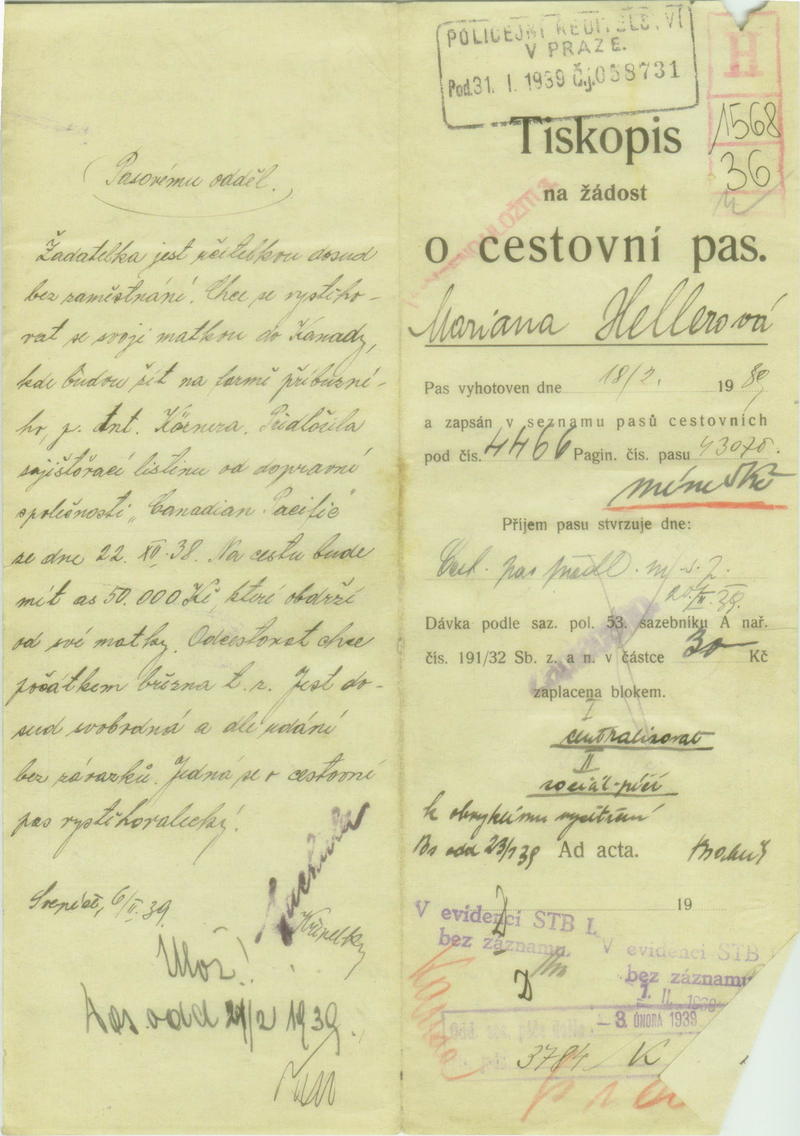 Pasovému odděl.
Žadatelka jest učitelkou dosud
bez zaměstnání. Chce se vystěho-
vat se svojí matkou do Kanady,
kde budou žít na farmě příbuzné-
ho, p. Ant. Körnera. Předložila
zajišťovací listinu od dopravní
společnosti „Canadian Pacific"
ze dne 22. XII. 38. Na cestu bude
mít as 50.000 Kč, které obdrží
od své matky. Odcestovat chce
počátkem března t. r. Jest do-
sud svobodná a dle udání
bez závazků. Jedná se o cestovní
pas vystěhovalecký.
6/II. 39.
Ulož!
Pas. odd 21/2 1939.
POLICEJNÍ ŘEDITELSTVÍ
V PRAZE.
Pod. 31. I. 1939 Č.j. 058731
H
1568
36
Tiskopis
na žádost
o cestovní pas.
Mariana Hellerová
Pas vyhotoven dne 18/2. 1939
a zapsán v seznamu pasů cestovních
pod čís. 4466 Pagin. čís. pasu 43070.
Příjem pasu stvrzuje dne:
Cest. pas
Dávka podle saz. pol. 53. sazebníku A nař.
čís. 191/32 Sb. z. a n. v částce 30 Kč
zaplacena blokem.
I
centralisovat
II
sociál-péči
k obvyklému vyšetření
odd 23/1 39 Ad acta.
19
V evidenci STB I.
bez záznamu.
V evidenci STB
bez záznamu
D
7. II. 1939
- 8. ÚNORA 1939
3784 / K